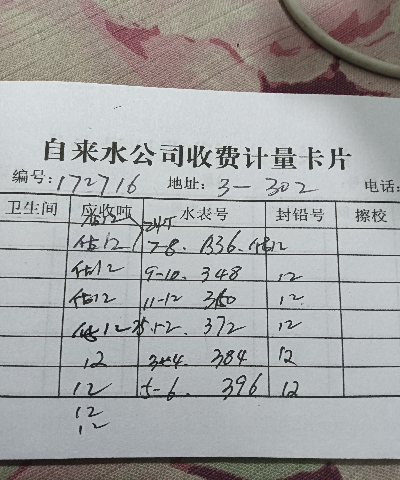 自来水公司收费计量卡片
编号: 172716 地址: 3-302 电话:
卫生间 应收吨 水表号 封铅号 擦校
估12 7-8. 336. 估12
估12 9-10. 348 12
估12 11-12 360 12
12 25.1-2. 372 12
12 3-4. 384 12
12 5-6. 396 12
12
12